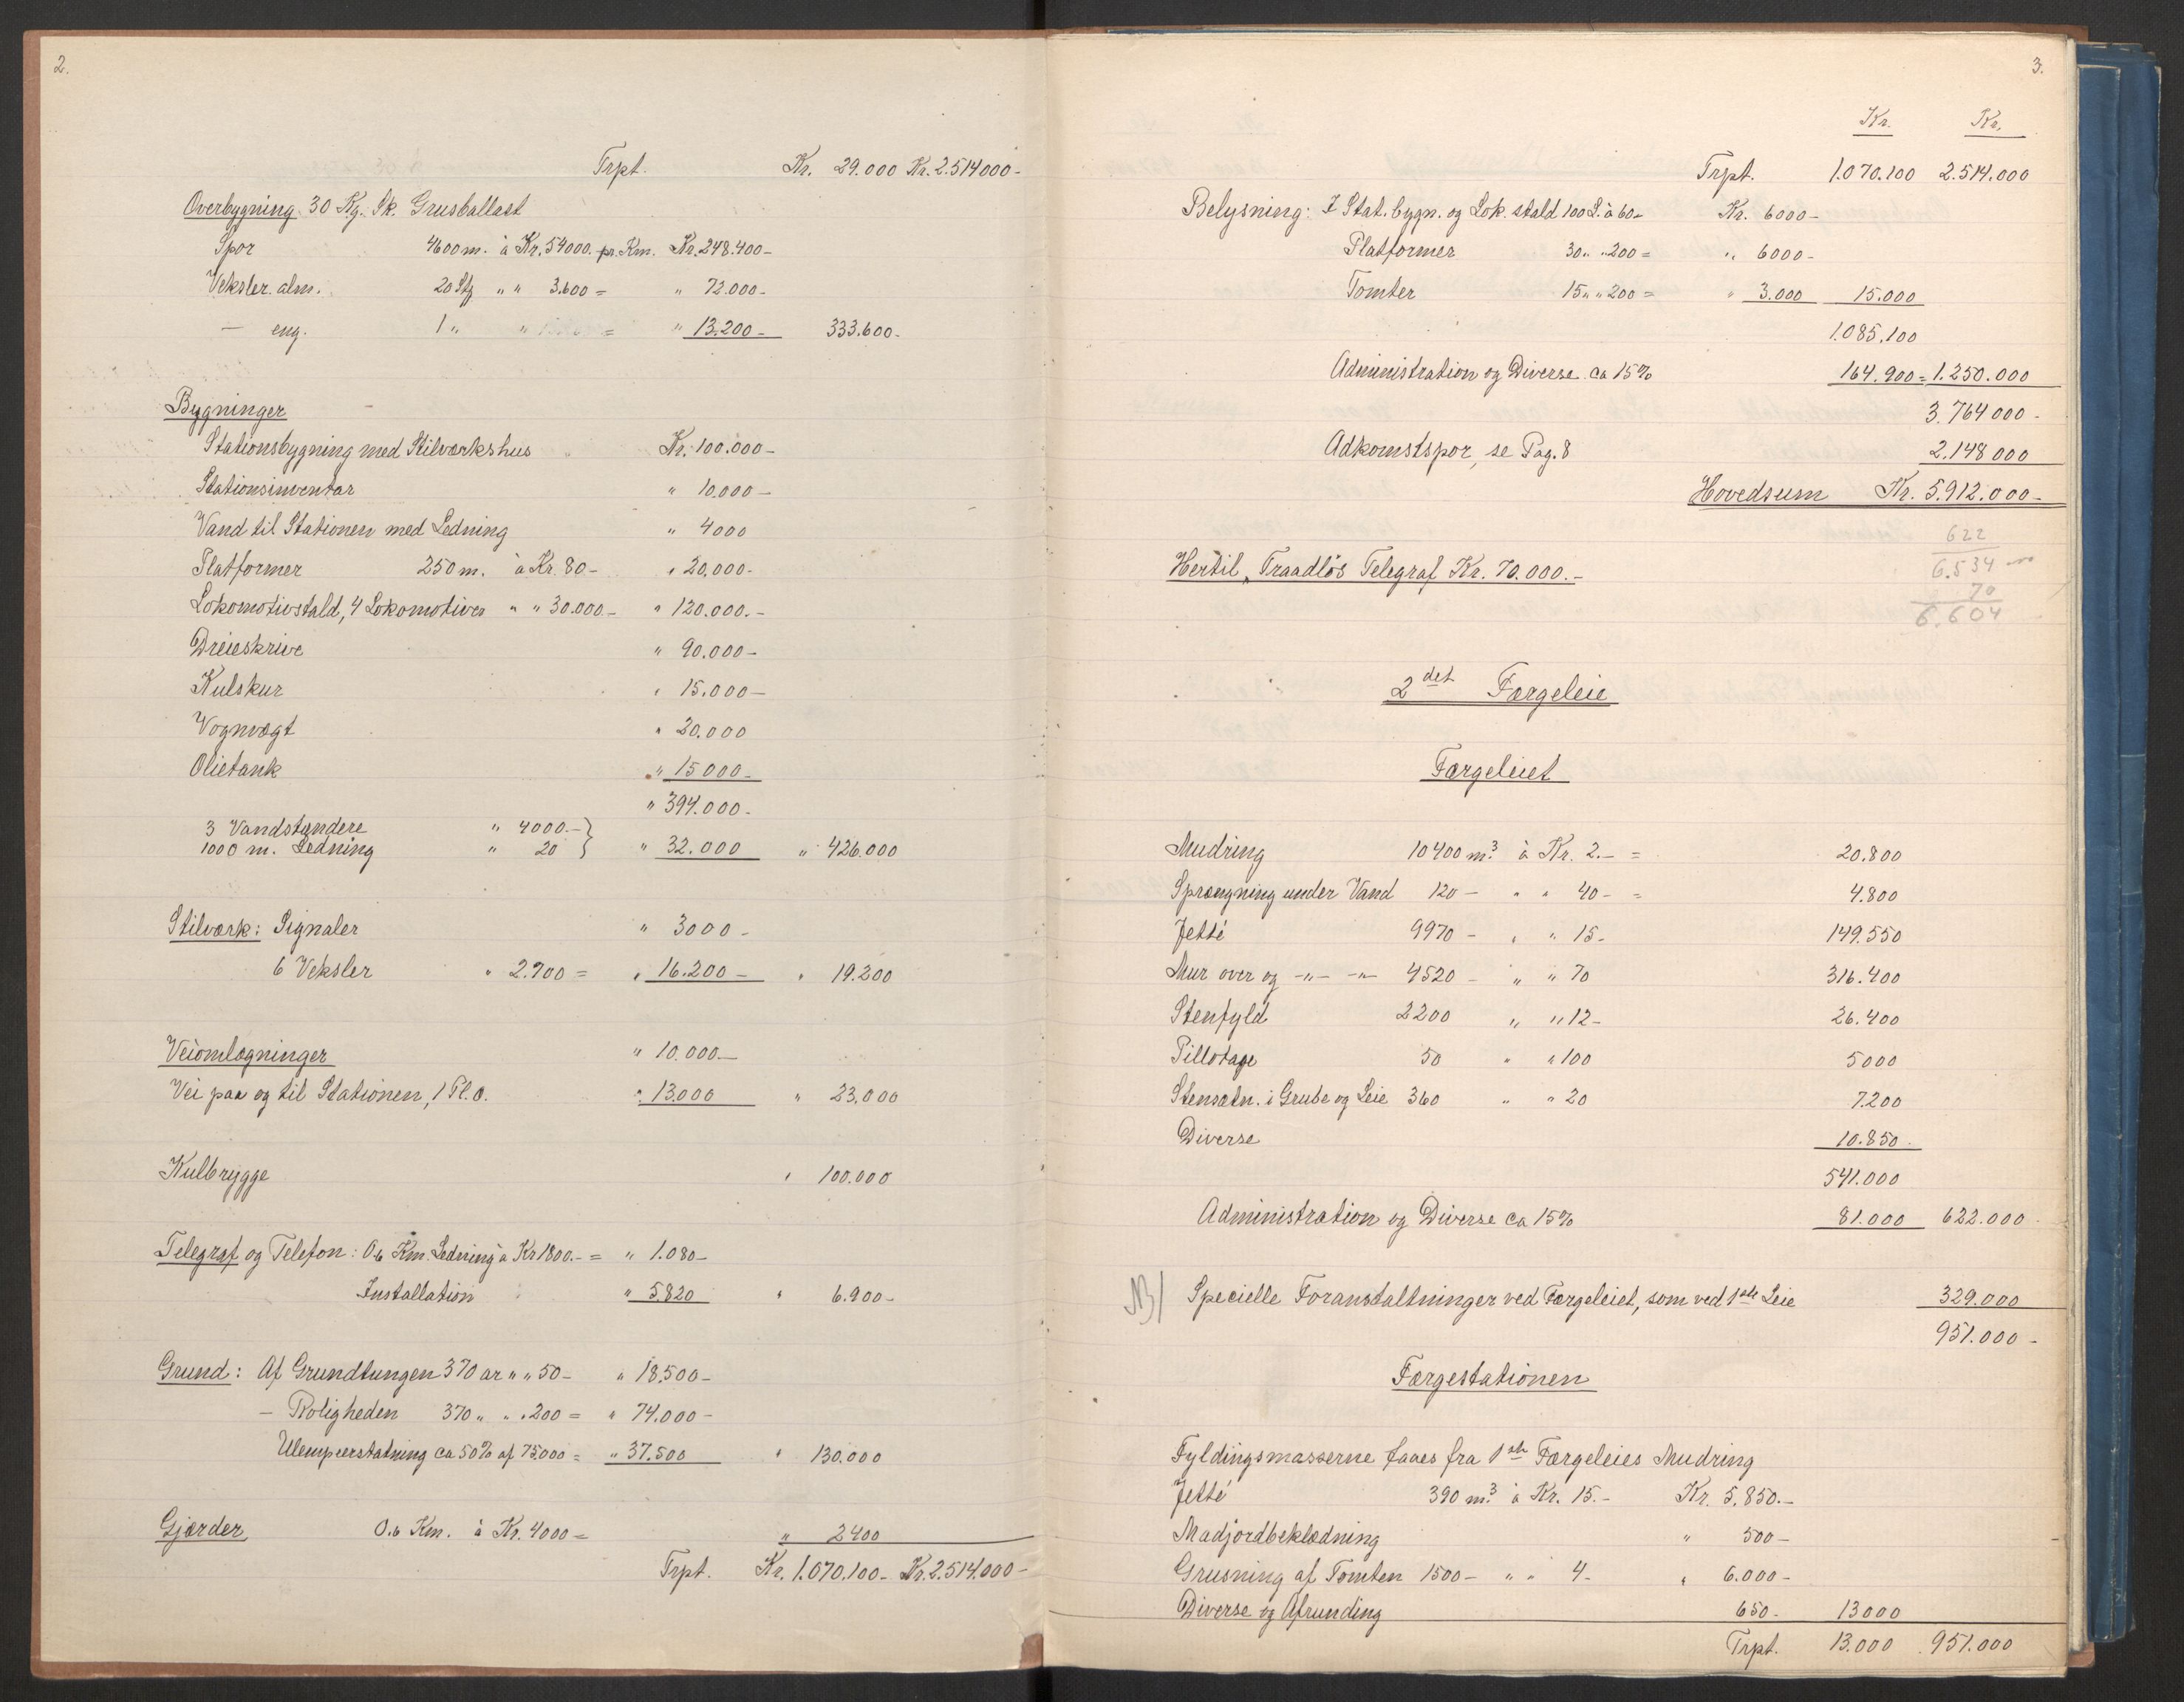 2.
Trpt. Kr. 29.000 Kr. 2.514000-
Overbygning 30 Kg. Sk. Grusballast
Spor 4600 m. à Kr. 54000. pr. Km. Kr. 248.400-
Veksler. alm. 20 Stk " " 3.600 = " 72.000-
— eng. 1 " " = " 13.200- 333.600-
Bygninger
Stationsbygning med Stilværkshus Kr. 100.000-
Stationsinventar " 10.000-
Vand til Stationen med Ledning " 4000
Platformer 250 m. à Kr. 80- " 20,000-
Lokomotivstald, 4 Lokomotiver " " 30.000- " 120.000.-
Dreieskive " 90.000-
Kulskur " 15.000-
Vognvægt " 20.000
Olietank " 15000-
" 394.000-
3 Vandstændere " 4000.- }
1000 m. Ledning " 20 } " 32.000 " 426.000
Stilværk: Signaler " 3000-
6 Veksler " 2.700 = " 16.200- " 19.200
Veiomlægninger " 10.000-
Vei paa og til Stationen, 1 Pl.o. " 13.000 " 23.000
Kulbrygge " 100.000
Telegraf og Telefon: 0.6 Km. Ledning à Kr 1800.- = " 1.080-
Installation " 5.820 " 6.900-
Grund: Af Grundtungen 370 ar " " 50- " 18.500-
— Roligheden 370 " " " 200 = " 74.000-
Ulempeerstatning ca 50% af 75000 = " 37.500 " 130.000
Gjærder 0.6 Km. à Kr. 4000 = " 2400
Trpt. Kr. 1.070.100- Kr. 2.514.000-
3.
Kr. Kr.
Trpt. 1.070.100 2.514.000
Belysning: I Stat. bygn. og Lok. stald 100 L. à 60- Kr. 6000-
Platformer 30 " " 200 = " 6000-
Tomter 15 " " 200 = " 3.000 15.000
1.085.100
Administration og Diverse ca 15% 164.900 = 1.250.000
3.764000-
Adkomstspor, se Pag. 8 2.148000
Hovedsum Kr. 5.912.000-
622
6.534
Hertil, Traadløs Telegraf Kr. 70.000.-
70
6.604
2det Færgeleie
Færgeleiet
Mudring 10400 m.3 à Kr. 2.- = 20.800
Sprængning under Vand 120 - " " 40 - = 4.800
Jetté 9970 - " " 15- 149.550
Mur over og -"- -"- 4520 - " " 70 316.400
Stenfyld 2200 " " 12- 26.400
Pillotage 50 " " 100 5000
Stensætn. i Grube og Leie 360 " " 20 7.200
Diverse 10.850
541.000
Administration og Diverse ca 15% 81.000 622.000
NB/ Specielle Foranstaltninger ved Færgeleiet, som ved 1ste Leie 329.000
951.000-
Færgestationen
Fyldingsmasserne faaes fra 1ste Færgeleies Mudring
Jetté 390 m.3 à Kr. 15.- Kr. 5.850.-
Madjordbeklædning " 500-
Grusning af Tomten 1500 - " " 4- " 6.000-
Diverse og Afrunding 650- 13000
Trpt. 13.000 951.000